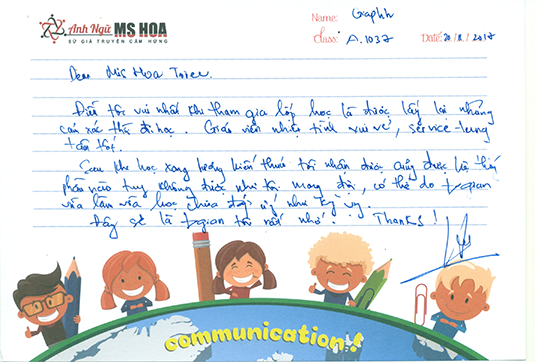 Anh Ngữ MS HOA
SỨ GIẢ TRUYỀN CẢM HỨNG
Name: Graphh
Class: A.1037 Date: 20/8/2017
Dear Ms Hoa Toeic.
Điều tôi vui nhất khi tham gia lớp học là được lấy lại những
cảm xúc thi đi học. Giáo viên nhiệt tình vui vẻ, service-lung
tận tốt.
Sau khi học xong lượng kiến thức tôi nhận được cũng được là
phần nào tuy không được như tôi mong đợi, có thể do
vừa làm vừa học chưa đạt như kỳ vọng.
Đây sẽ là tôi rất nhớ. Thanks!
communication!